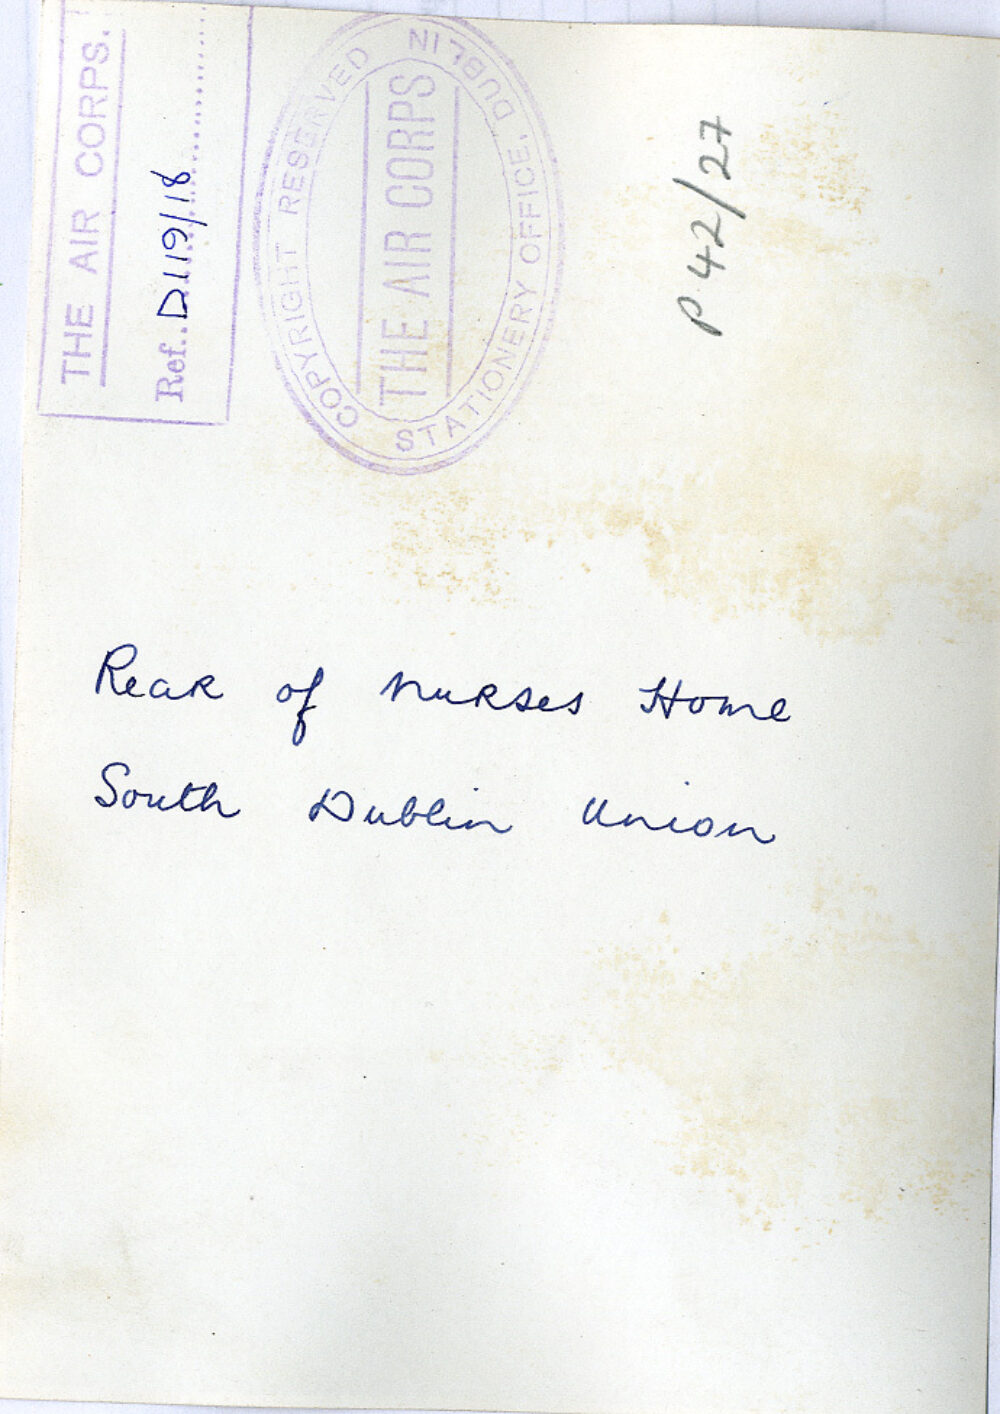 THE AIR CORPS.
Ref. D119/18
COPYRIGHT RESERVED
THE AIR CORPS
STATIONERY OFFICE, DUBLIN
P 42/27
Rear of Nurses Home
South Dublin Union